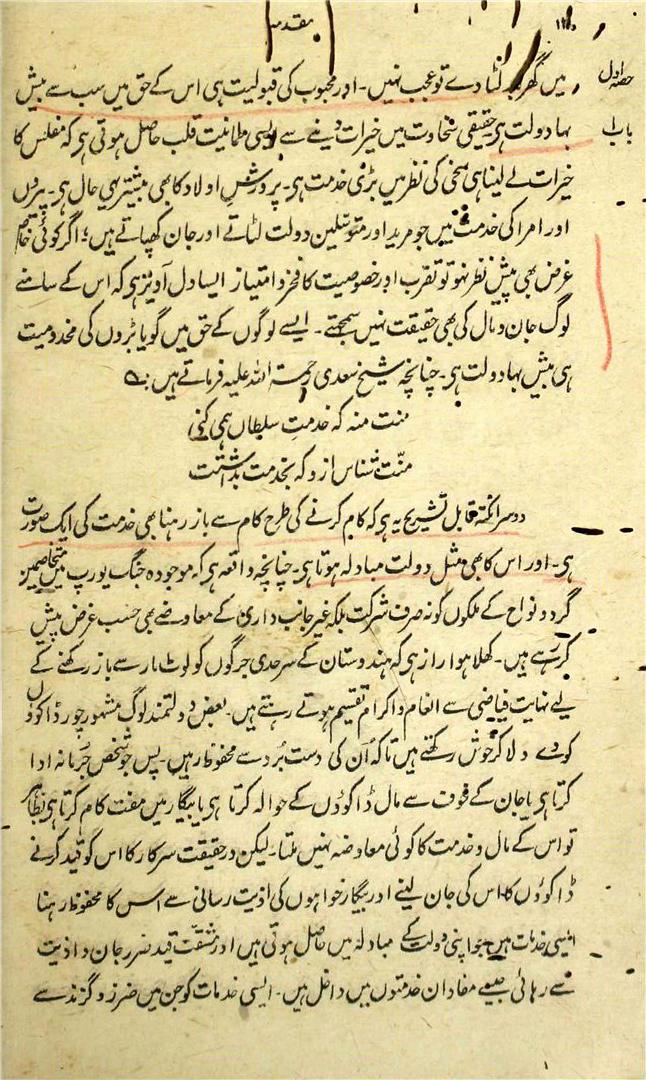 مقدمہ
حصہ اول
باب
میں گھر بھر لٹا دے تو عجب نہیں۔ اور محبوب کی قبولیت ہی اس کے حق میں سب سے بیش
بہا دولت ہی حقیقی سخاوت میں خیرات دینے سے ایسی طمانیت قلب حاصل ہوتی ہی کہ مفلس کا
خیرات لے لینا ہی سخی کی نظر میں بڑی خدمت ہی۔ پرورش اولاد کا بھی بیشتر یہی حال ہی۔ پیروں
اور امرا کی خدمت میں جو مرید اور متوسلین دولت لٹاتے اور جان کھپاتے ہیں؛ اگر کوئی خاص
غرض بھی پیش نظر نہو تو تقرب اور خصوصیت کا فخر و امتیاز ایسا دل آویز ہی کہ اس کے سامنے
لوگ جان و مال کی بھی حقیقت نہیں سمجھتے۔ ایسے لوگوں کے حق میں گویا بڑوں کی مخدومیت
ہی بیش بہا دولت ہی۔ چنانچہ شیخ سعدی رحمۃ اللہ علیہ فرماتے ہیں :
منت منہ کہ خدمتِ سلطاں ہمی کنی
منّت شناس ازو کہ بخدمت بداشتت
دوسرا نکتہ قابل تشریح یہ ہی کہ کام کرنے کی طرح کام سے باز رہنا بھی خدمت کی ایک صورت
ہی۔ اور اس کا بھی مثل دولت مبادلہ ہوتا ہی۔ چنانچہ واقعہ ہی کہ موجودہ جنگ یورپ میں متخاصمین
گرد و نواح کے ملکوں کو نہ صرف شرکت بلکہ غیر جانب داری کے معاوضے بھی حسب غرض پیش
کر رہے ہیں۔ کھلا ہوا راز ہی کہ ہندوستان کے سرحدی جرگوں کو لوٹ مار سے باز رکھنے کے
لیے نہایت فیاضی سے انعام و اکرام تقسیم ہوتے رہتے ہیں۔ بعض دولتمند لوگ مشہور چور ڈاکوؤں
کو دے دلا کر خوش رکھتے ہیں تاکہ اُن کی دست بُرد سے محفوظ رہیں۔ پس جو شخص جُرمانہ ادا
کرتا ہی یا جان کے خوف سے مال ڈاکوؤں کے حوالہ کرتا ہی یا بیگار میں مفت کام کرتا ہی بظاہر
تو اس کے مال و خدمت کا کوئی معاوضہ نہیں ملتا۔ لیکن درحقیقت سرکار کا اس کو قید کرنے
ڈاکوؤں کا اس کی جان لینے اور بیگار خواہوں کی اذیت رسانی سے اس کا محفوظ رہنا
ایسی خدمات ہیں جو اپنی دولت کے مبادلہ میں حاصل ہوتی ہیں اور مشقت قید ضرر جان و اذیت
سے رہائی جیسے مفاد ان خدمتوں میں داخل ہیں۔ ایسی خدمات کو جن میں ضرر و گزند سے